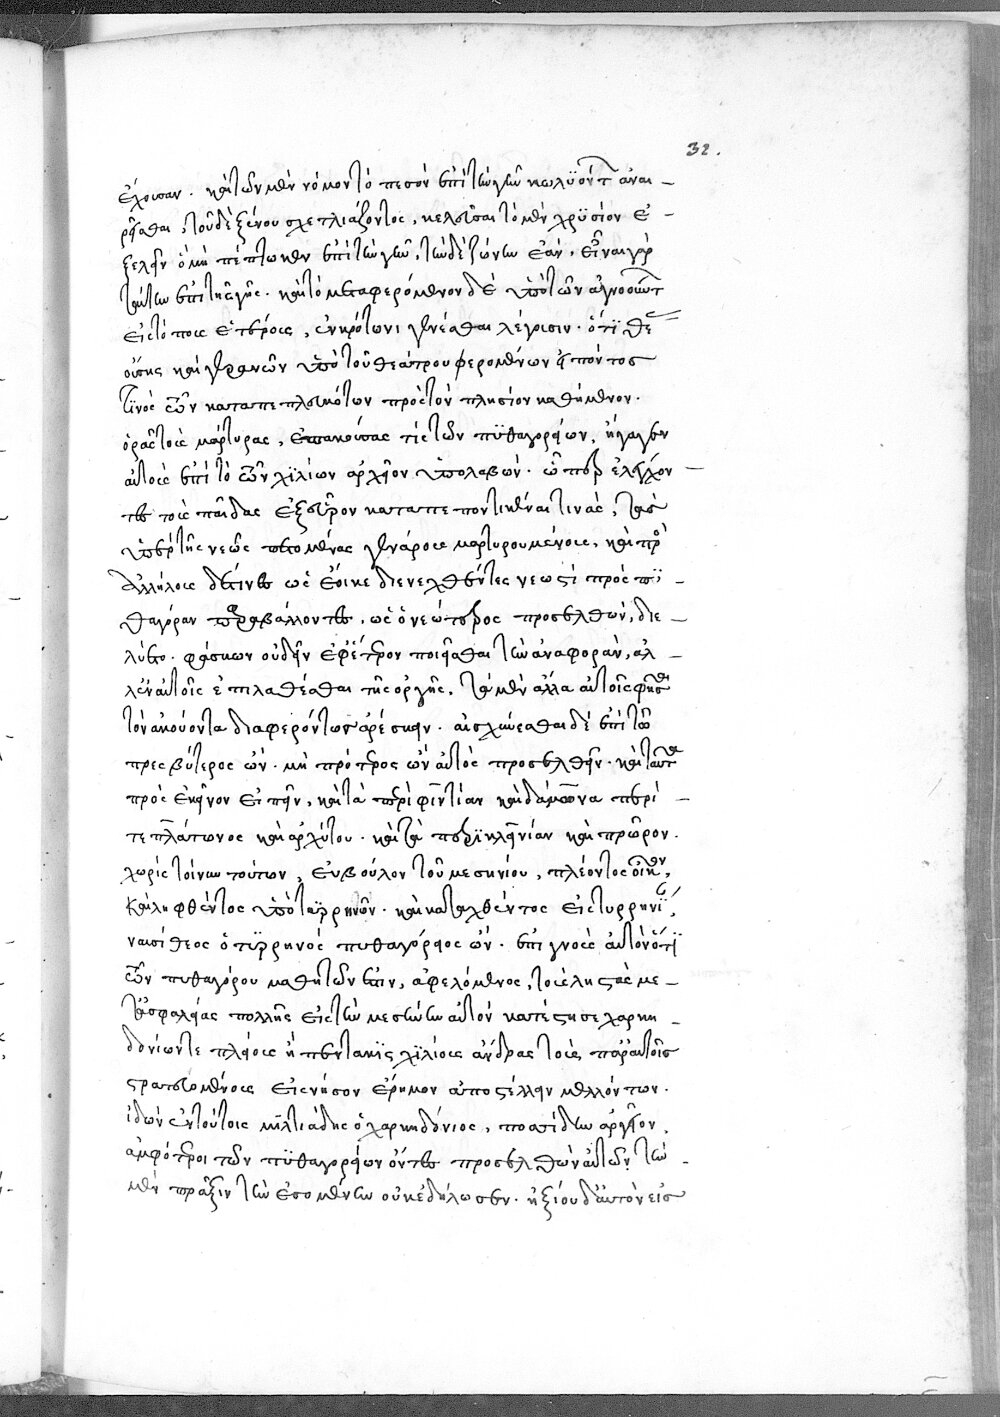 32.
ἔχουσαν. καὶ τῶν μὲν νόμον τὸ πεσὸν ἐπὶ τὴν γῆν κωλυόντ ἀναι-
ρεῖσθαι, τοῦ δὲ ξένου σχετλιάζοντος, κελεῦσαι τὸ μὲν χρϋσίον ἐ-
ξελεῖν ὃ μὴ πέπτωκεν ἐπὶ τὴν γῆν, τὴν δὲ ζώνην ἐᾶν, εἶναι γὰρ
ταύτην ἐπὶ τῆς γῆς. καὶ τὸ μεταφερόμενον δὲ ὑπὸ τῶν ἀγνοούντ
εἰς τόπους ἑτέρους, ἐν κρότωνι γενέσθαι λέγουσιν. ὅτϊ θέ
οὔσης καὶ γεράνων ὑπὸ τοῦ θεάτρου φερομένων εἰπόντος
τϊνὸς τῶν καταπεπλευκότων πρὸς τὸν πλησίον καθήμενον.
ὁρᾶς τοὺς μάρτυρας, ἐπακούσας τίς τῶν πϋθαγορείων, ἤγαγεν
αὐτοὺς ἐπὶ τὸ τῶν χϊλίων ἀρχεῖον ὑπολαβών. ὅπερ ἐλέγχον-
τες τοὺς παῖδας ἐξεῦρον καταπεποντικέναι τινάς, τὰς
ὑπὲρ τῆς νεὼς πετομένας γεράνους μαρτυρουμένους, καὶ πρὸ
ἀλλήλους δέ τινες ὡς ἔοικε διενεχθέντες νεωστὶ πρὸς πϋ-
θαγόραν παραβάλλοντες, ὡς ὁ νεώτερος προσελθών, διε-
λύετο. φάσκων οὐ δεῖν ἐφ' ἕτερον ποιεῖσθαι τὴν ἀναφοράν, ἀλ-
λ' ἐν αὐτοῖς ἐπιλαθέσθαι τῆς ὀργῆς, τὰ μὲν ἄλλα αὐτοῖς φῆσαι
τὸν ἀκούοντα διαφερόντως ἀρέσκειν. αἰσχύνεσθαι δὲ ἐπὶ τῷ
πρεσβύτερος ὤν. μὴ πρότερος ὢν αὐτὸς προσελθεῖν. καὶ ταῦτα
πρὸς ἐκεῖνον εἰπεῖν, καὶ τὰ περὶ φιντίαν καὶ δάμωνα περί-
τε πλάτωνος καὶ ἀρχύτου. καὶ τὰ περὶ κλεινίαν καὶ πρῶρον.
χωρὶς τοίνυν τούτων, εὐβούλου τοῦ μεσηνίου, πλέοντος οἴκεν,
καὶ ληφθέντος ὑπὸ τϋρρηνῶν. καὶ καταχθέντος εἰς τυρρηνϊ,
ναυσίθεος ὁ τϋρρηνὸς πυθαγόρειος ὤν. ἐπιγνοὺς αὐτὸν ὅτϊ
τῶν πυθαγόρου μαθητῶν ἐστιν, ἀφελόμενος, τοὺς ληστὰς με-
τ' ἀσφαλείας πολλῆς εἰς τὴν μεσήνην αὐτὸν κατέστησε χαρκη-
δονίων τε πλείους ἢ πεντακισχϊλίους ἄνδρας τοὺς παρ' αὐτοῖς
στρατευομένους εἰς νῆσον ἔρημον ἀποστέλλειν μελλόντων.
ἰδὼν ἐν τούτοις μιλτιάδης ὁ χαρκηδόνιος, ποσίδην ἀργεῖον,
ἀμφότεροι τῶν πϋθαγορείων ὄντες προσελθὼν αὐτῶν τὴν-
μὲν πρᾶξιν τὴν ἐσομένην οὐκ ἐδήλωσεν. ἠξίου δ' αὐτὸν εἰς